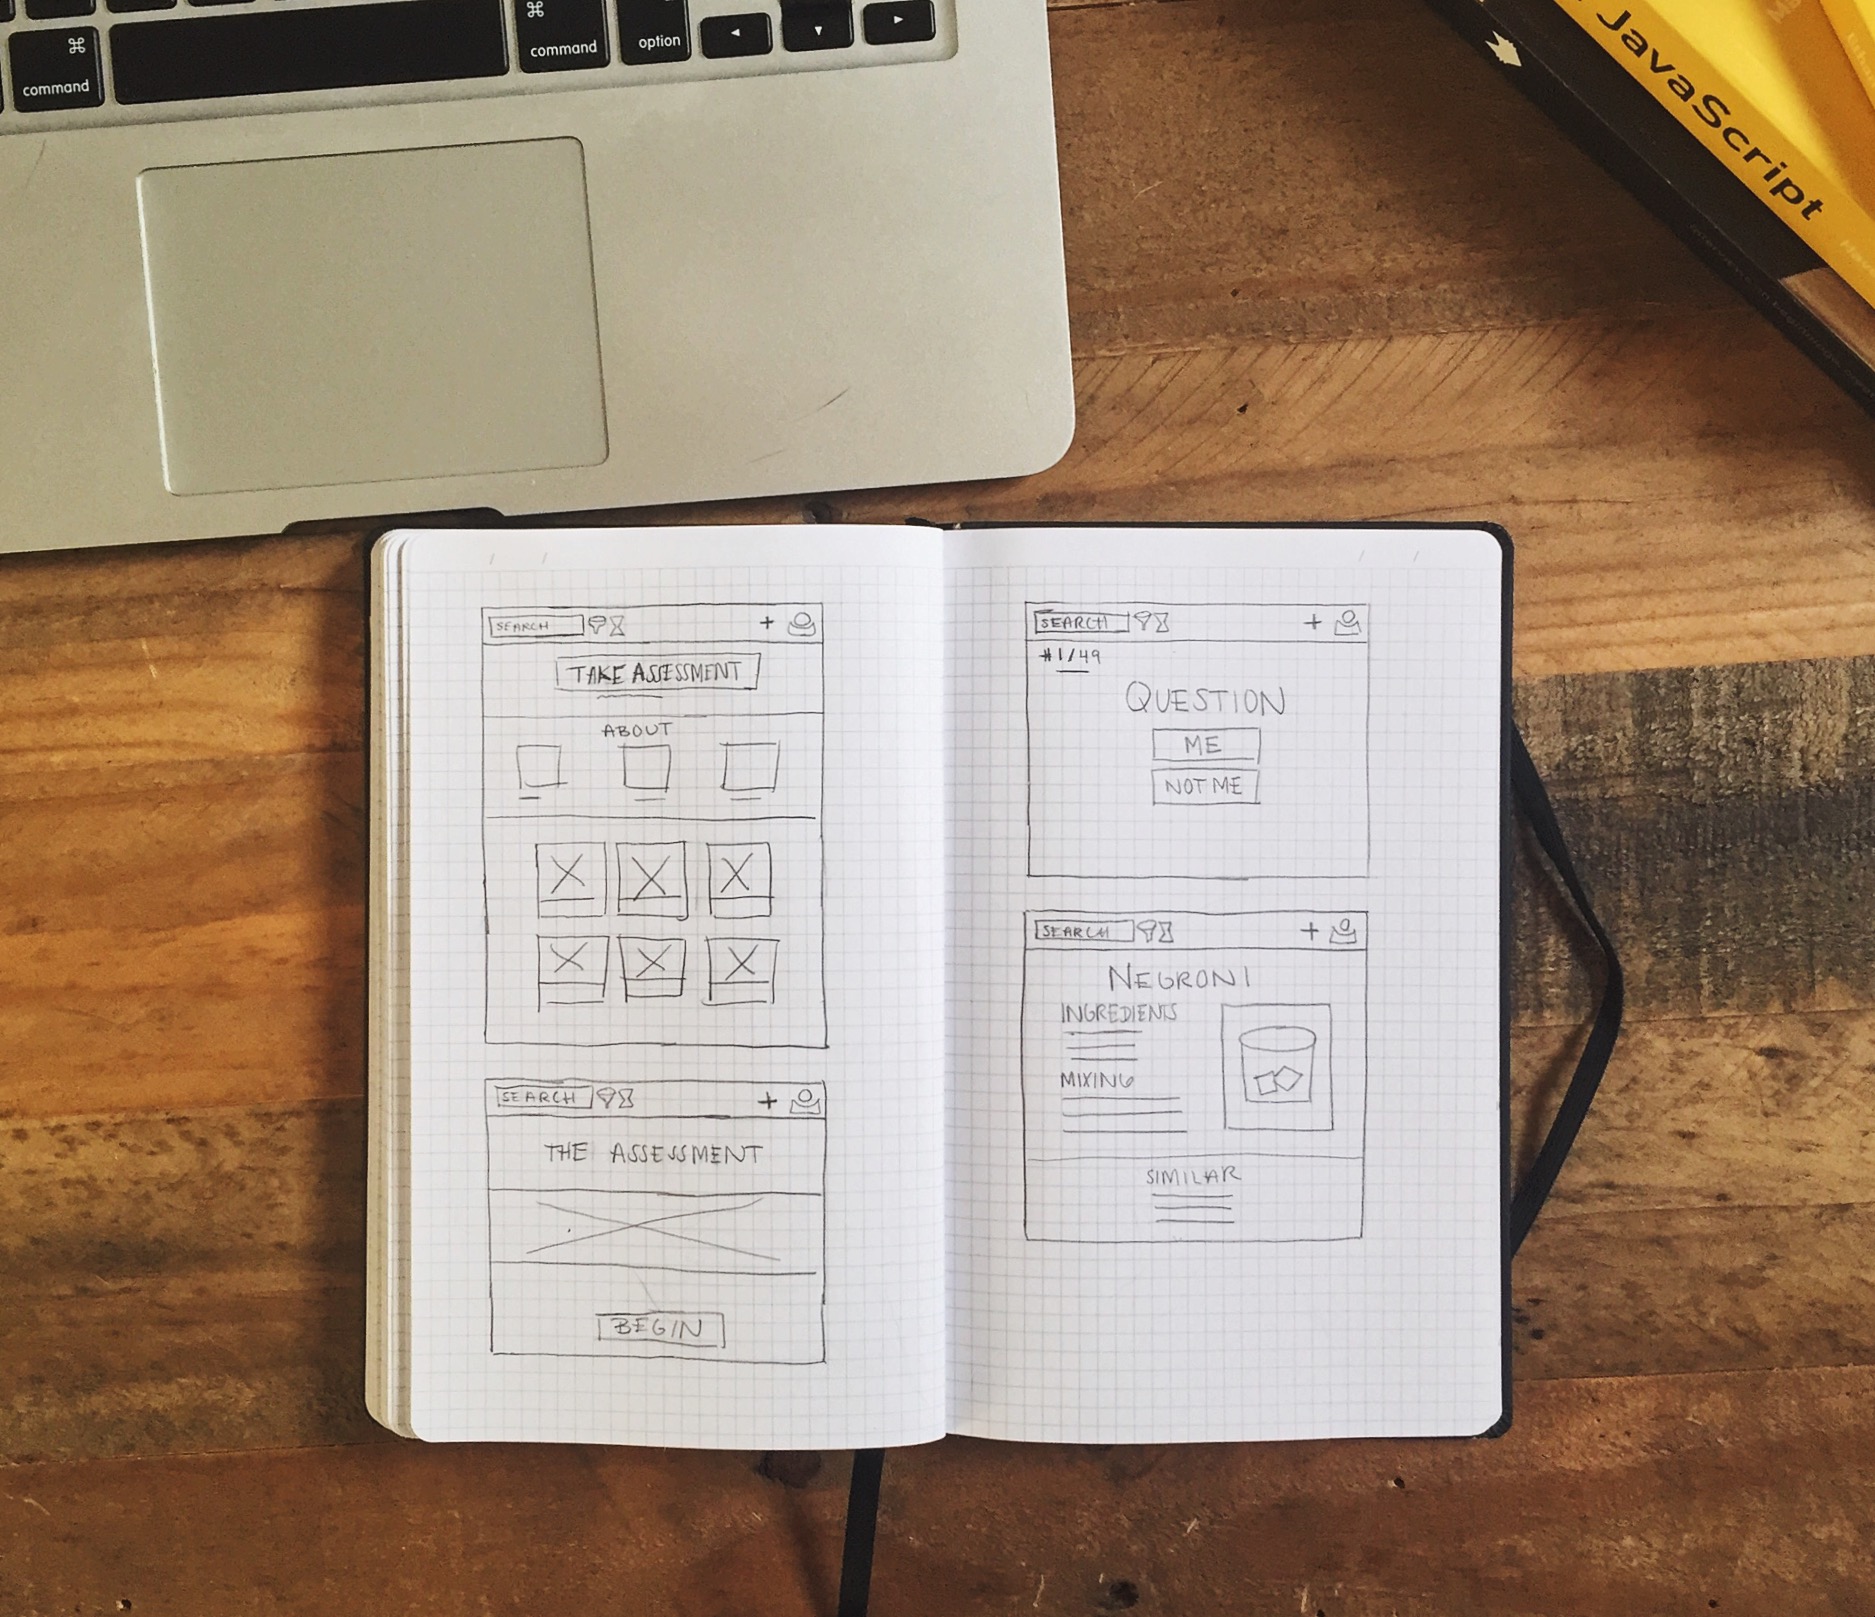 ⌘
command
⌘
command
option
JavaScript
SEARCH
TAKE ASSESSMENT
ABOUT
SEARCH
THE ASSESSMENT
BEGIN
SEARCH
#1/49
QUESTION
ME
NOT ME
SEARCH
NEGRONI
INGREDIENTS
MIXING
SIMILAR